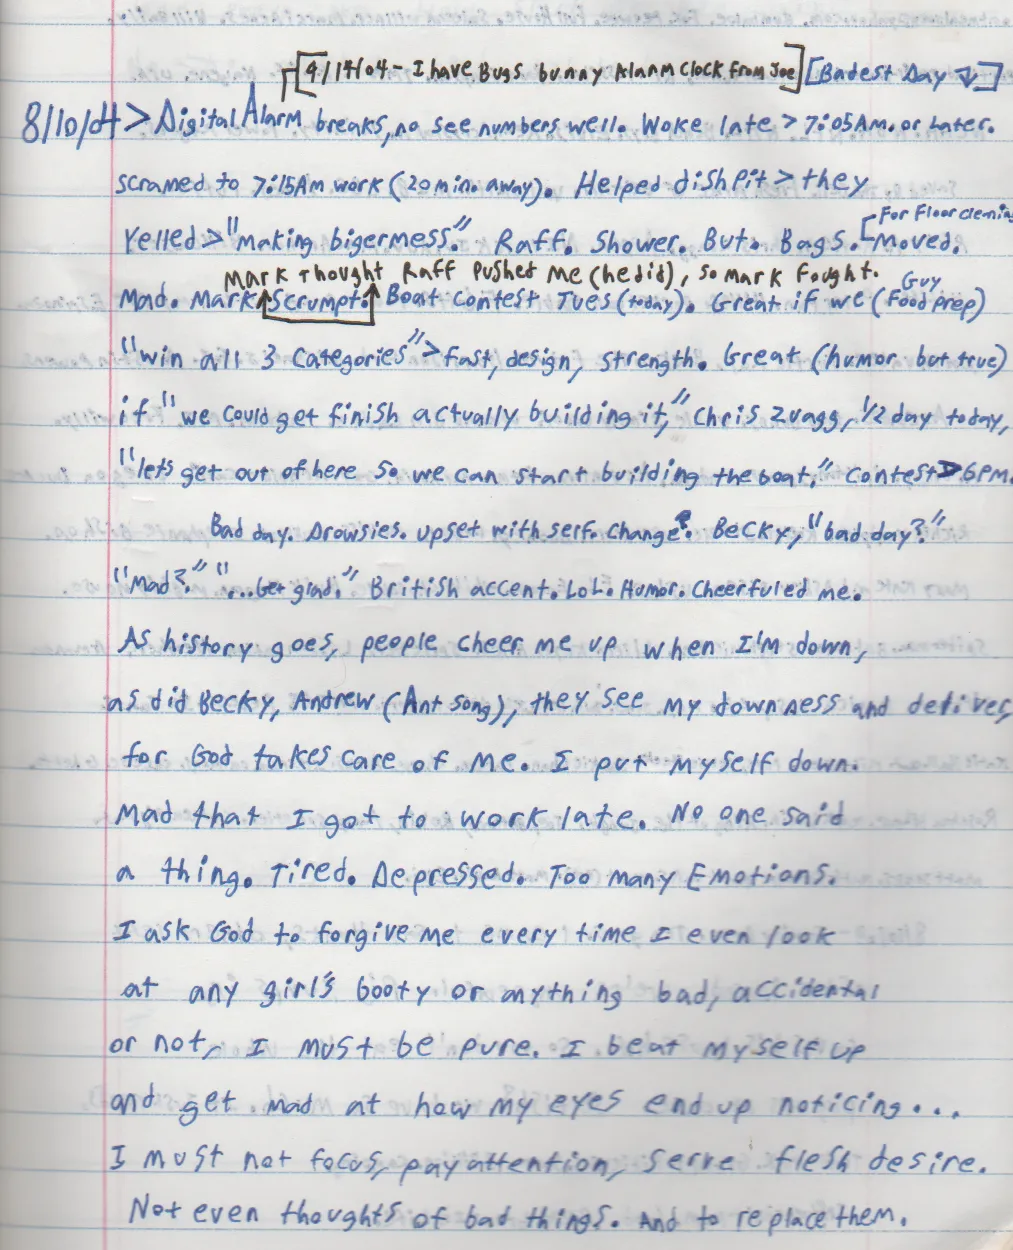 9/14/04 - I have Bugs bunny Alarm Clock from Joe [Badest Day ↓]
8/10/04 > Digital Alarm breaks, no see numbers well. Woke late > 7:05AM. or Later.
scramed to 7:15AM work (20 min. away). Helped dish pit > they
For Floor cleming
Yelled > "making bigermess." Raff. Shower. But. Bags. Moved.
Mark thought Raff pushed me (he did), so Mark fought. Guy
Mad. Mark Scrumpto Boat contest Tues (today). Great if we (Food prep)
"win all 3 categories" > fast, design, strength. Great (humor but true)
if "we could get finish actually building it," Chris Zvagg, 1/2 day today,
"lets get out of here so we can start building the boat." Contest > 6pm.
Bad day. Drowsies. upset with self. change? Becky, "bad day?"
"Mad?" "...Get glad." British accent. LoL. Humor. Cheerfuled me.
As history goes, people cheer me up when I'm down,
as did Becky, Andrew (Ant song), they see my downness and
for God takes care of me. I put myself down.
Mad that I got to work late. No one said
a thing. Tired. Depressed. Too many Emotions.
I ask God to forgive me every time I even look
at any girl's booty or anything bad, accidental
or not, I must be pure. I beat myself up
and get mad at how my eyes end up noticing...
I must not focus, pay attention, serve flesh desire.
Not even thoughts of bad things. And to replace them.